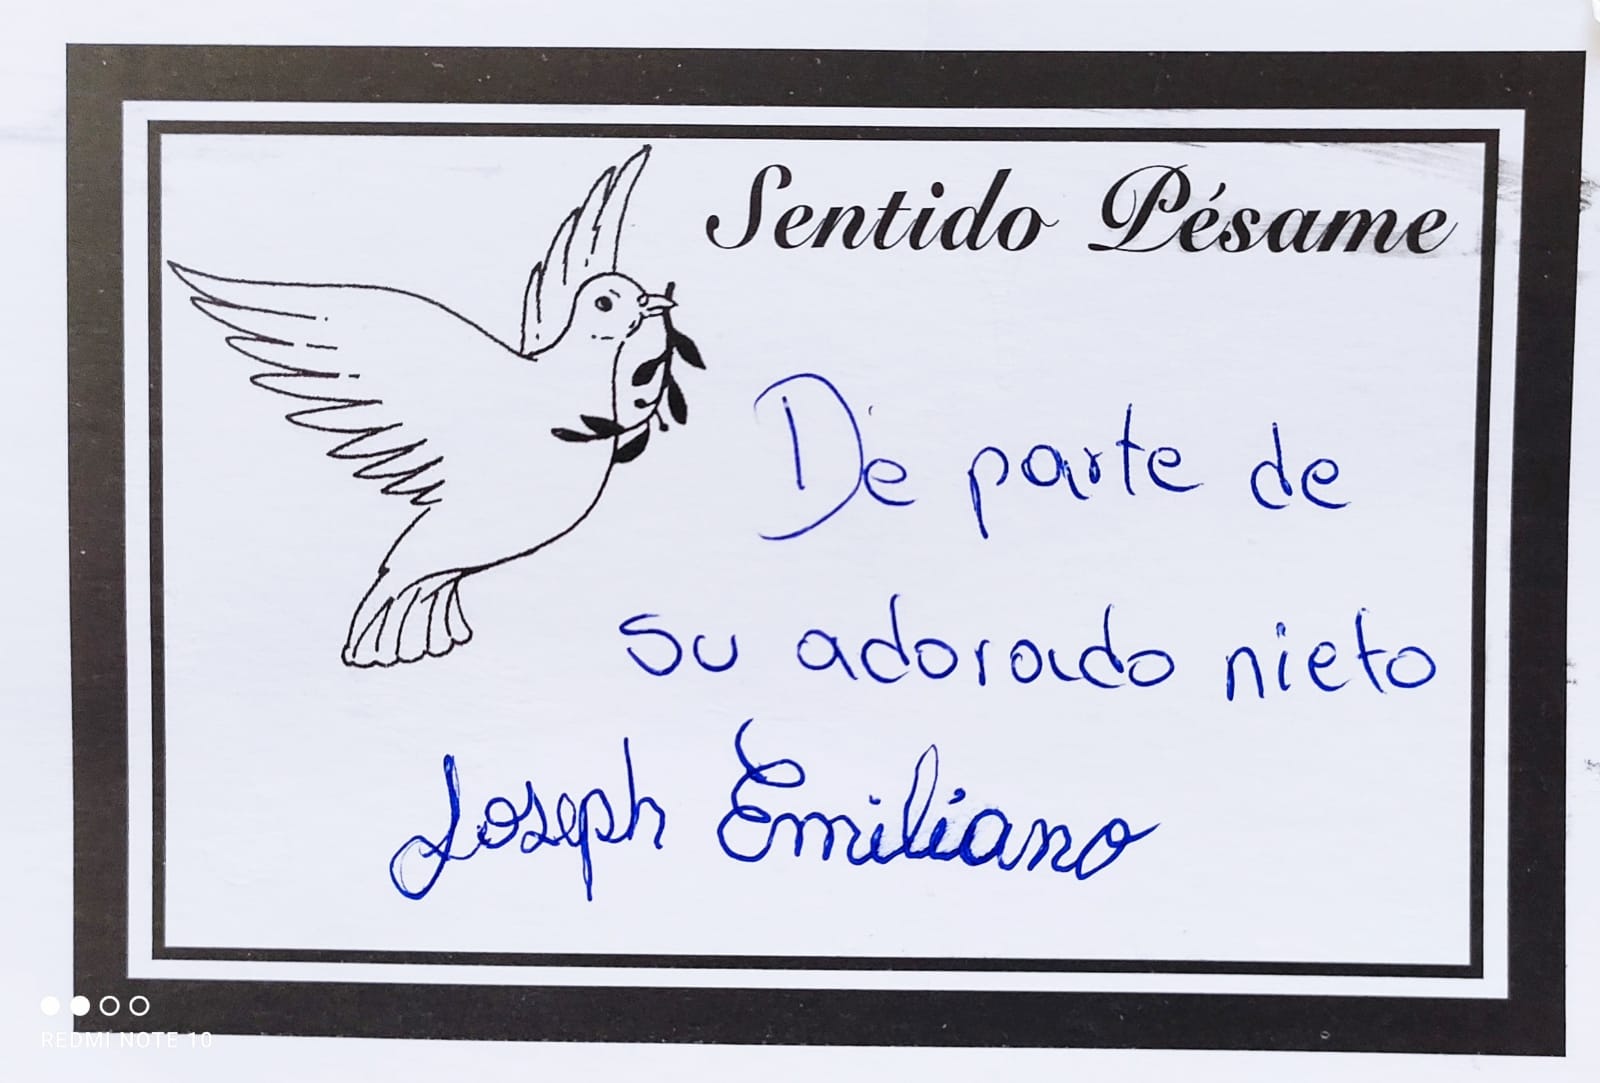 Sentido Pésame
De parte de
su adorado nieto
Joseph Emiliano
REDMI NOTE 10